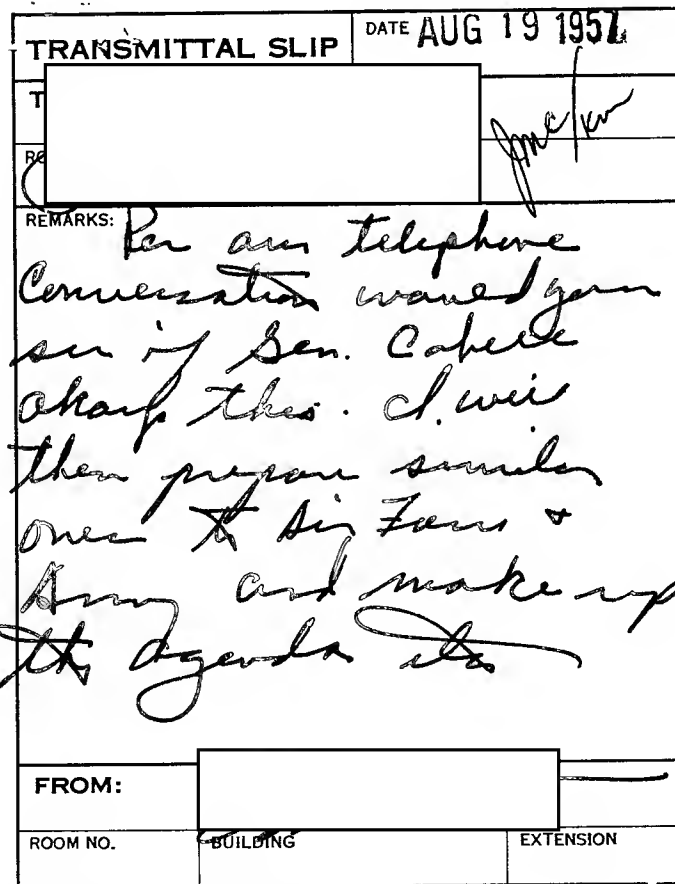 TRANSMITTAL SLIP
DATE AUG 19 1957
T
RO
REMARKS:
Per our telephone
Conversation would you
see if Gen. Cabell
okays this. I will
then prepare similar
ones to Air Force &
Army and make up
the agenda etc
FROM:
ROOM NO.
BUILDING
EXTENSION